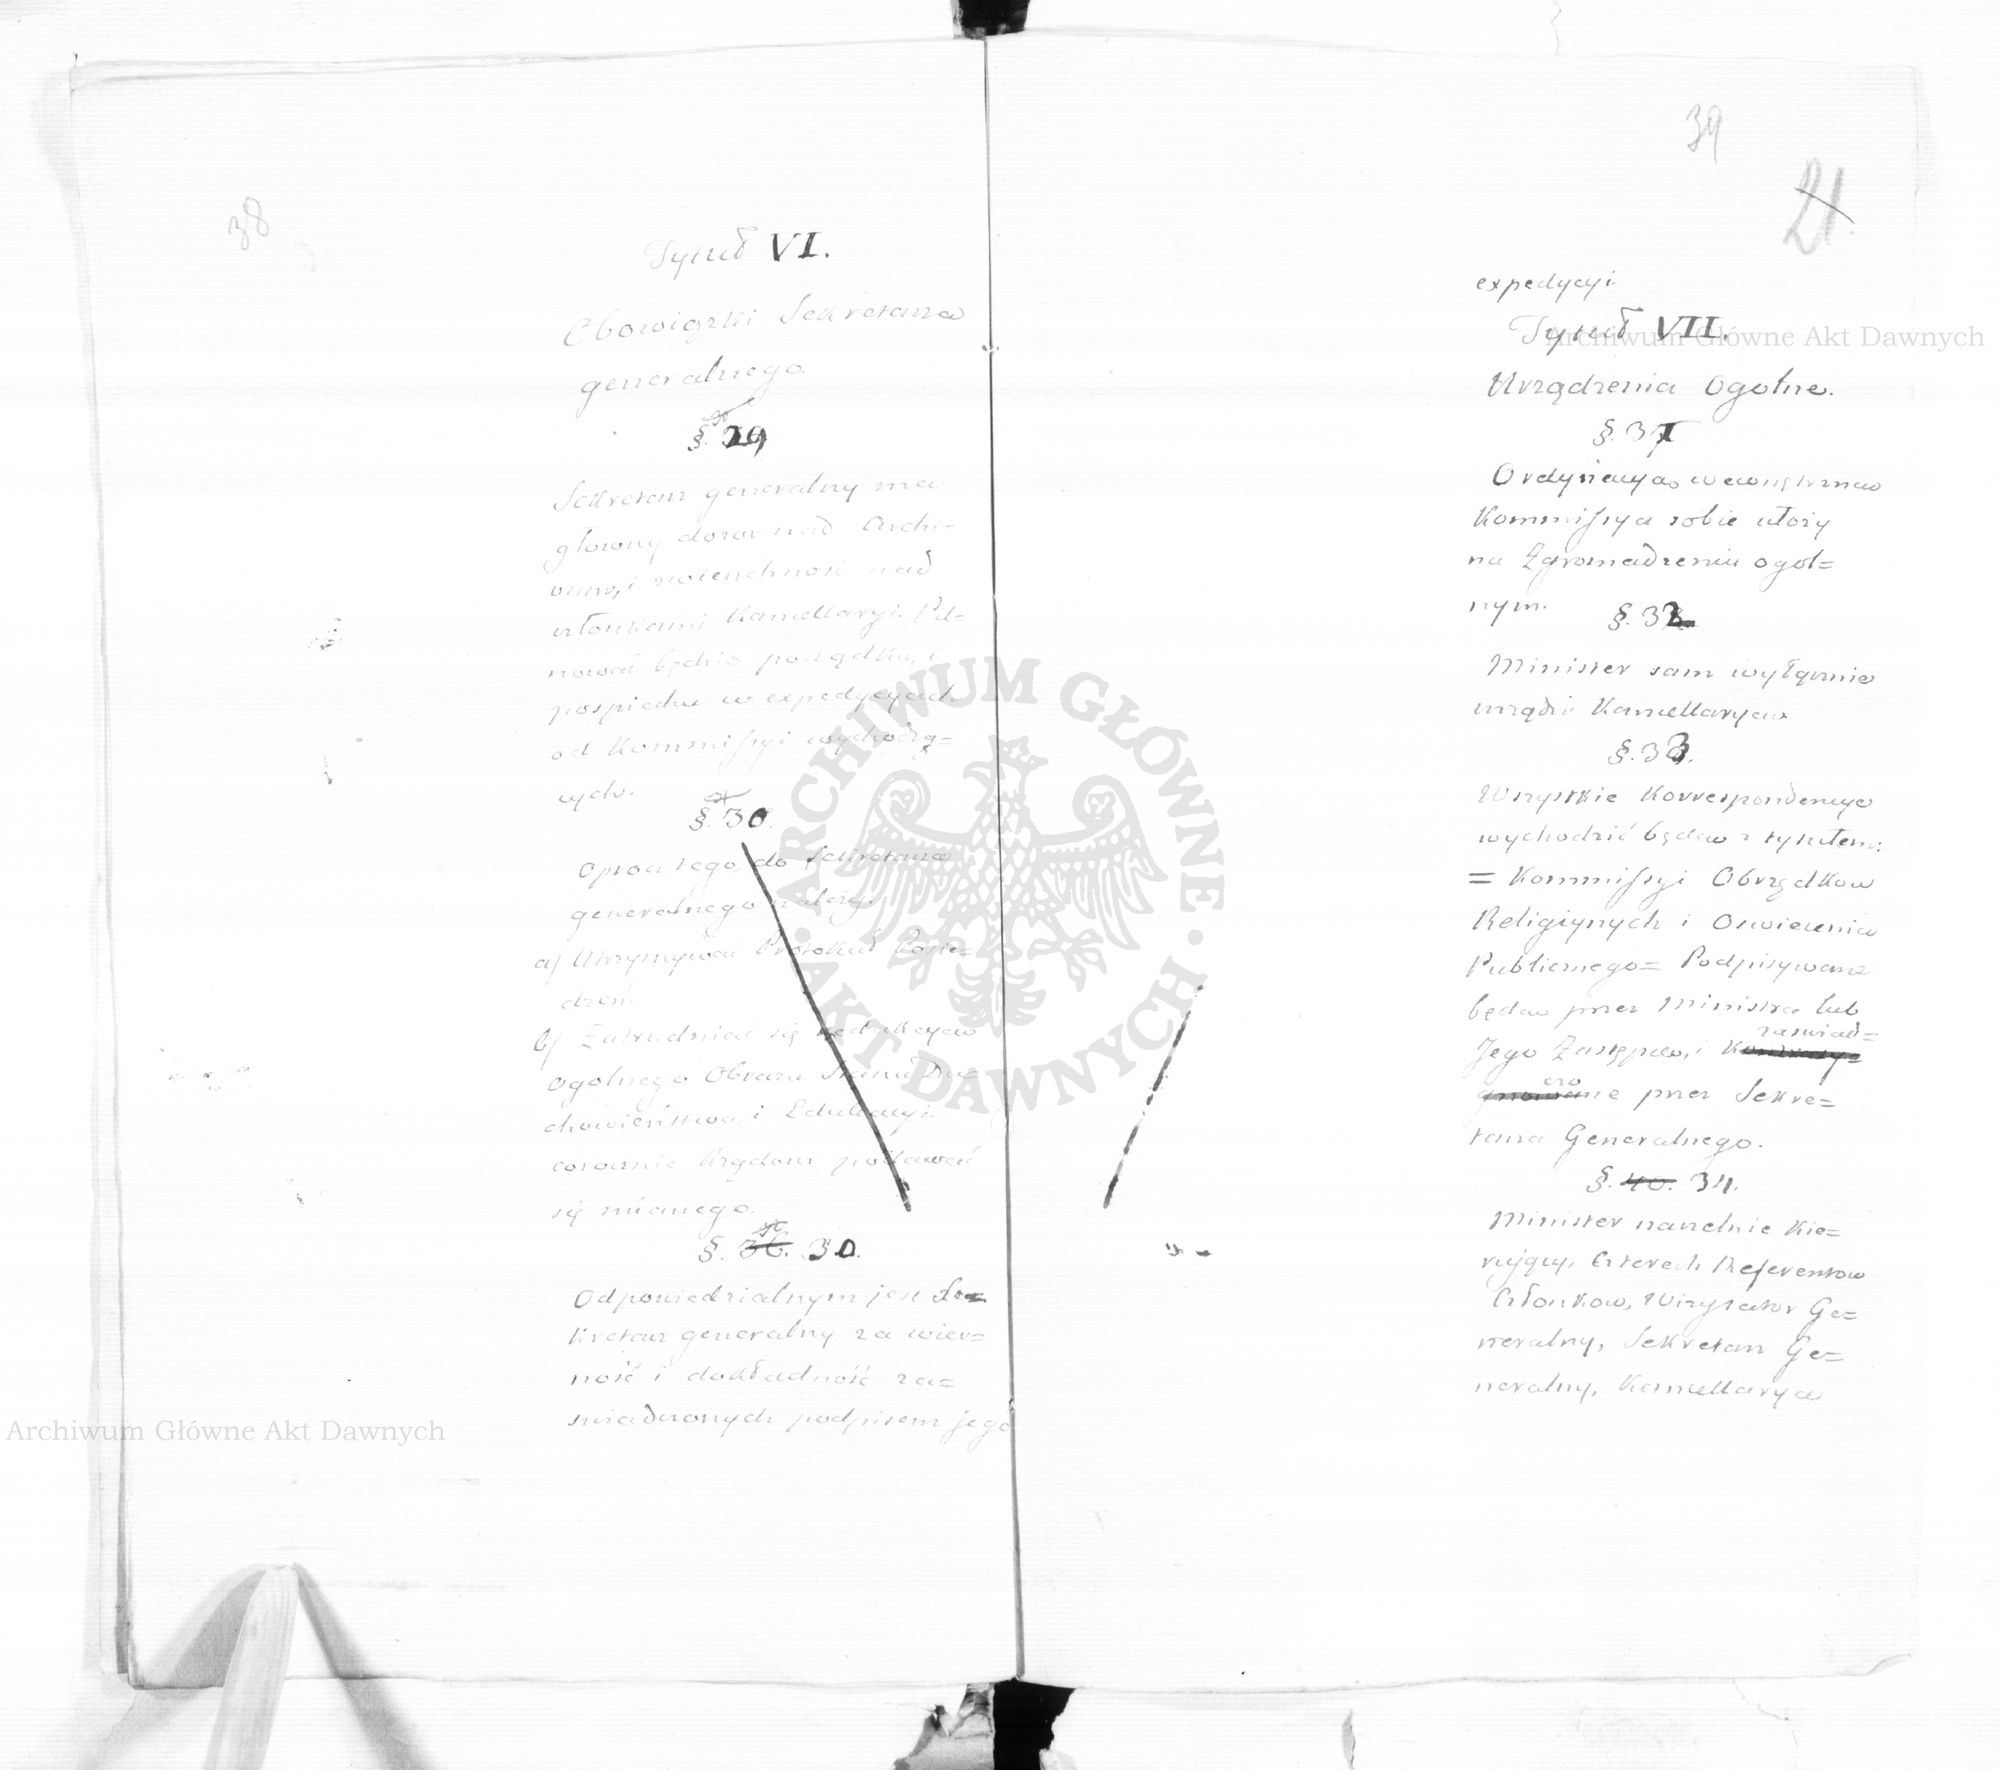 38
Tytuł VI.
Obowiązki Sekretarza
generalnego.
§. 29
Sekretarz generalny ma
główny dozor nad Archi-
wum, i zwierzchność nad
członkami Kancellaryi. Pil-
nować będzie porządku, i
pospiechu w expedycyach
od Kommissyi wychodzą=
cych.
§. 30.
Oprócz tego do Sekretarza
generalnego należy:
a/ Utrzymywać Protokuł Posie=
dzeń.
b/ Zatrudniać się redakcyą
ogolnego Obrazu Stanu Du=
chowieństwa, i Edukacyi
corocznie Rządowi podawać
się mianego.
§. 36. 30.
Odpowiedzialnym jest Se=
kretarz generalny za wier=
ność i dokładność za=
świadczonych podpisem jego
39
21.
expedycyi.
Tytuł VII.
Urządzenia Ogolne.
§. 31
Ordynacyą wewnętrzną
Kommissya sobie ułoży
na Zgromadzeniu ogol=
nym.
§. 32
Minister sam wyłącznie
urządzi Kancellaryą.
§. 33.
Wszystkie Korrespondencye
wychodzić będą z tytułem:
= Kommissyi Obrządkow
Religiynych i Oswiecenia
Publicznego= Podpisywane
będą przez Ministra lub
zaswiad=
Jego Zastępcę, i
czo
ne przez Sekre=
tarza Generalnego.
§. 40. 34.
Minister naczelnie Kie=
rujący, Czterech Referentow
Członkow, Wizytator Ge=
neralny, Sekretarz Ge=
neralny, Kancellarya
Archiwum Główne Akt Dawnych
Archiwum Główne Akt Dawnych
ARCHIWUM GŁÓWNE AKT DAWNYCH